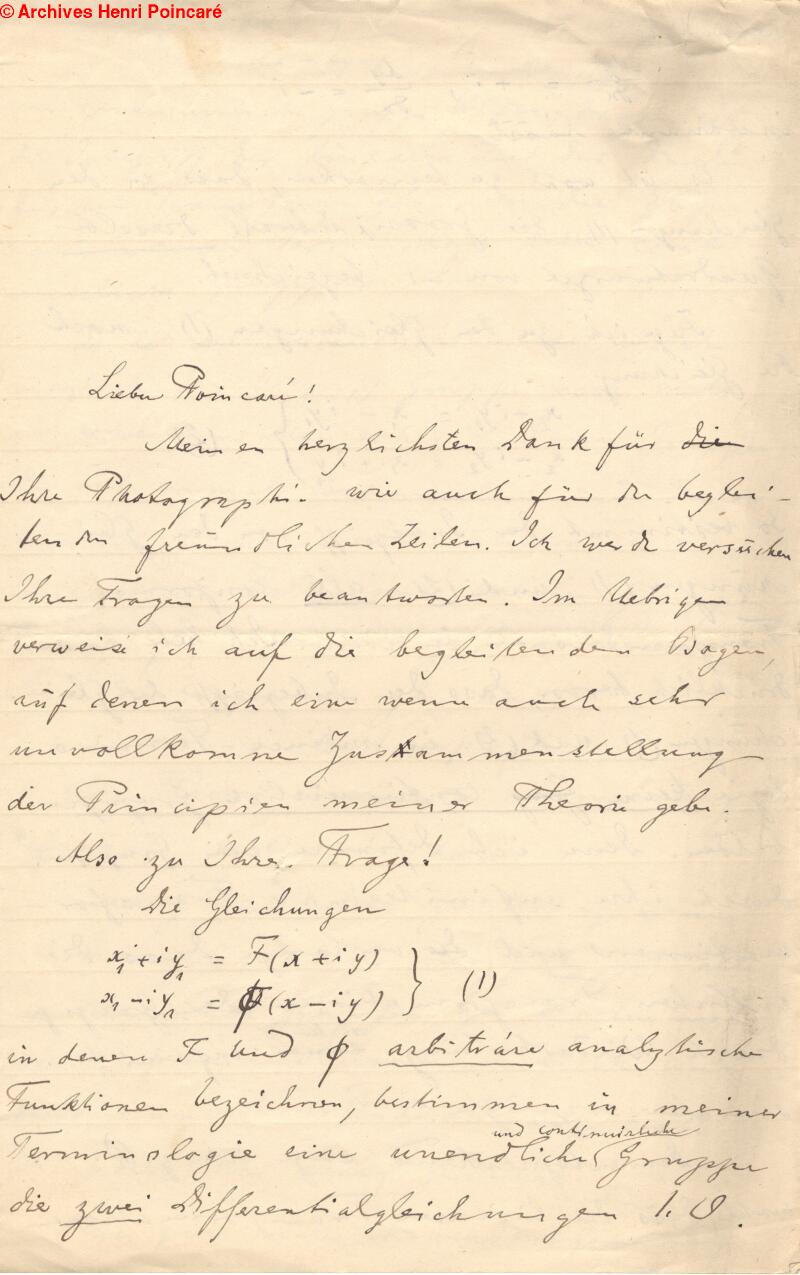 © Archives Henri Poincaré
Lieber Poincaré!
Meinen herzlichsten Dank für die
Ihre Photographie wie auch für die beglei-
tenden freundlichen Zeilen. Ich werde versuchen
Ihre Fragen zu beantworten. Im Uebrigen
verweise ich auf die begleitenden Bogen,
auf denen ich eine wenn auch sehr
unvollkomne Zusammenstellung
der Principien meiner Theorie gebe.
Also zu Ihrer Frage!
Die Gleichungen
x₁ + iy₁ = F(x + iy)
x₁ − iy₁ = Φ(x − iy) } (1)
in denen F und Φ arbiträre analytische
Funktionen bezeichnen, bestimmen in meiner
Terminologie eine unendliche und continuirliche Gruppe
die zwei Differentialgleichungen 1. O.